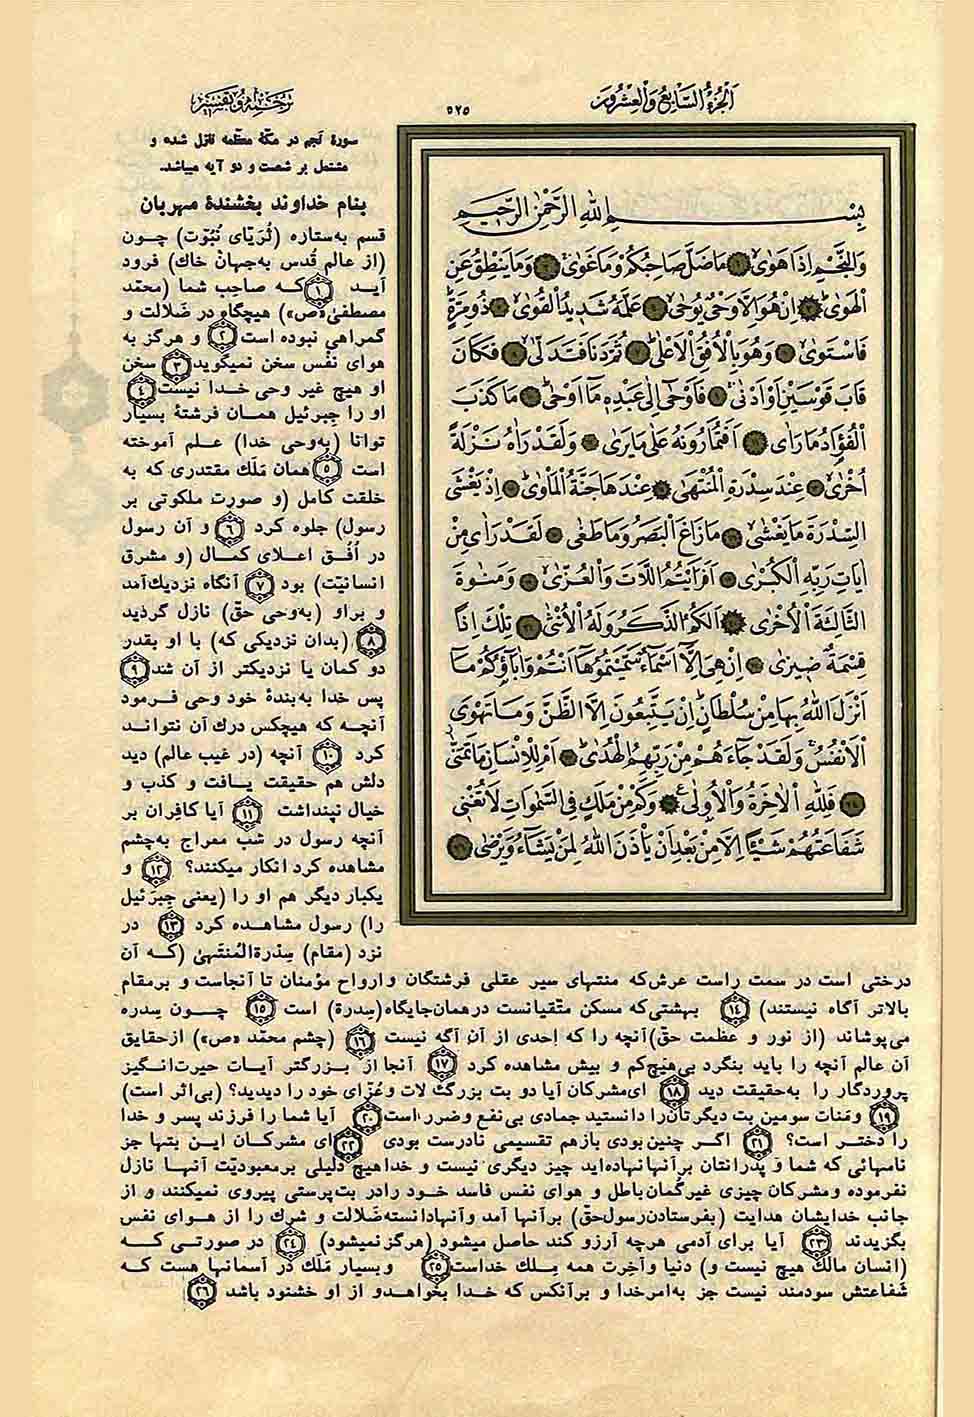 اَلْجُزْءُ السَّابِعُ وَالْعِشْرُونَ
٥٢٥
ترجمه و تفسیر
بِسْمِ اللهِ الرَّحْمٰنِ الرَّحِيمِ
وَالنَّجْمِ اِذَا هَوٰىۙ ﴿١﴾ مَا ضَلَّ صَاحِبُكُمْ وَمَا غَوٰىۚ ﴿٢﴾ وَمَا يَنْطِقُ عَنِ
الْهَوٰىۜ ﴿٣﴾ اِنْ هُوَ اِلَّا وَحْيٌ يُوحٰىۙ ﴿٤﴾ عَلَّمَهُ شَدِيدُ الْقُوٰىۙ ﴿٥﴾ ذُو مِرَّةٍۜ
فَاسْتَوٰىۙ ﴿٦﴾ وَهُوَ بِالْاُفُقِ الْاَعْلٰىۜ ﴿٧﴾ ثُمَّ دَنَا فَتَدَلّٰىۙ ﴿٨﴾ فَكَانَ
قَابَ قَوْسَيْنِ اَوْ اَدْنٰىۚ ﴿٩﴾ فَاَوْحٰٓى اِلٰى عَبْدِهِ مَٓا اَوْحٰىۜ ﴿١٠﴾ مَا كَذَبَ
الْفُؤَادُ مَا رَاٰى ﴿١١﴾ اَفَتُمَارُونَهُ عَلٰى مَا يَرٰى ﴿١٢﴾ وَلَقَدْ رَاٰهُ نَزْلَةً
اُخْرٰىۙ ﴿١٣﴾ عِنْدَ سِدْرَةِ الْمُنْتَهٰى ﴿١٤﴾ عِنْدَهَا جَنَّةُ الْمَأْوٰىۜ ﴿١٥﴾ اِذْ يَغْشَى
السِّدْرَةَ مَا يَغْشٰىۙ ﴿١٦﴾ مَا زَاغَ الْبَصَرُ وَمَا طَغٰى ﴿١٧﴾ لَقَدْ رَاٰى مِنْ
اٰيَاتِ رَبِّهِ الْكُبْرٰى ﴿١٨﴾ اَفَرَاَيْتُمُ اللَّاتَ وَالْعُزّٰىۙ ﴿١٩﴾ وَمَنٰوةَ
الثَّالِثَةَ الْاُخْرٰى ﴿٢٠﴾ اَلَكُمُ الذَّكَرُ وَلَهُ الْاُنْثٰى ﴿٢١﴾ تِلْكَ اِذًا
قِسْمَةٌ ضِيزٰى ﴿٢٢﴾ اِنْ هِيَ اِلَّٓا اَسْمَٓاءٌ سَمَّيْتُمُوهَٓا اَنْتُمْ وَاٰبَٓاؤُكُمْ مَٓا
اَنْزَلَ اللهُ بِهَا مِنْ سُلْطَانٍۜ اِنْ يَتَّبِعُونَ اِلَّا الظَّنَّ وَمَا تَهْوَى
الْاَنْفُسُۚ وَلَقَدْ جَٓاءَهُمْ مِنْ رَبِّهِمُ الْهُدٰىۜ ﴿٢٣﴾ اَمْ لِلْاِنْسَانِ مَا تَمَنّٰىۘ
﴿٢٤﴾ فَلِلّٰهِ الْاٰخِرَةُ وَالْاُو۫لٰى۟ ﴿٢٥﴾ وَكَمْ مِنْ مَلَكٍ فِي السَّمٰوَاتِ لَا تُغْنِي
شَفَاعَتُهُمْ شَيْـًٔا اِلَّا مِنْ بَعْدِ اَنْ يَأْذَنَ اللهُ لِمَنْ يَشَٓاءُ وَيَرْضٰى ﴿٢٦﴾
سورهٔ نجم در مکهٔ معظمه نازل شده و
مشتمل بر شصت و دو آیه میباشد.
بنام خداوند بخشندهٔ مهربان
قسم به‌ستاره (ثُریّای نُبُوّت) چون
(از عالم قُدس به‌جهان خاك) فرود
آید ﴿۱﴾ که صاحِب شما (محمّد
مصطفیٰ«ص») هیچگاه در ضَلالت و
گمراهی نبوده است ﴿۲﴾ و هرگز به
هوای نفس سخن نمیگوید ﴿۳﴾ سخن
او هیچ غیر وحی خدا نیست ﴿۴﴾
او را جِبرئیل همان فرشتهٔ بسیار
توانا (به‌وحی خدا) علم آموخته
است ﴿۵﴾ همان مَلَك مقتدری که به
خلقت کامل (و صورت ملکوتی بر
رسول) جلوه کرد ﴿۶﴾ و آن رسول
در اُفُق اعلای کمال (و مشرق
انسانیّت) بود ﴿۷﴾ آنگاه نزدیك‌آمد
و براو (به‌وحی حقّ) نازل گردید
﴿۸﴾ (بدان نزدیکی که) با او بقدر
دو کمان یا نزدیکتر از آن شد ﴿۹﴾
پس خدا به‌بندهٔ خود وحی فرمود
آنچه که هیچکس درك آن نتواند
کرد ﴿۱۰﴾ آنچه (در غیب عالم) دید
دلش هم حقیقت یافت و کذب و
خیال نپنداشت ﴿۱۱﴾ آیا کافِران بر
آنچه رسول در شب معراج به‌چشم
مشاهده کرد انکار میکنند؟ ﴿۱۲﴾ و
یکبار دیگر هم او را (یعنی جِبرَئیل
را) رسول مشاهده کرد ﴿۱۳﴾ در
نزد (مقام) سِدْرةالمُنتَهیٰ (که آن
درختی است در سمت راست عرش‌که منتهای سیر عقلی فرشتگان وارواح مؤمنان تا آنجاست و برمقام
بالاتر آگاه نیستند) ﴿۱۴﴾ بهشتی‌که مسکن متّقیانست درهمان‌جایگاه(سِدرة) است ﴿۱۵﴾ چون سِدره
می‌پوشاند (از نور و عظمت حقّ)آنچه را که اِحدی از آن آگه نیست ﴿۱۶﴾ (چشم محمّد «ص») ازحقایق
آن عالم آنچه را باید بنگرد بی‌هیچ‌کم و بیش مشاهده کرد ﴿۱۷﴾ آنجا از بزرگتر آیات حیرت‌انگیز
پروردگار را به‌حقیقت دید ﴿۱۸﴾ ای‌مشرکان آیا دو بت بزرگ لات وعُزّای خود را دیدید؟ (بی‌اثر است)
﴿۱۹﴾ ومَنات سومین بت دیگرتان‌را دانستید جمادی بی‌نفع وضرر است ﴿۲۰﴾ آیا شما را فرزند پسر و خدا
را دختر است؟ ﴿۲۱﴾ اگر چنین‌بودی بازهم تقسیمی نادرست بودی ﴿۲۲﴾ ای مشرکان این بتها جز
نامهائی که شما و پدرانتان برآنهانهاده‌اید چیز دیگری نیست و خداهیچ دلیلی برمعبودیّت آنها نازل
نفرموده ومشرکان چیزی غیرگُمان‌باطل و هوای نفس فاسد خود رادر بت‌پرستی پیروی نمیکنند و از
جانب خدایشان هدایت (بفرستادن‌رسول‌حقّ) برآنها آمد وآنهادانسته‌ضَلالت و شرك را از هوای نفس
بگزیدند ﴿۲۳﴾ آیا برای آدمی هرچه آرزو کند حاصل میشود (هرگزنمیشود) ﴿۲۴﴾ در صورتی که
(انسان مالك هیچ نیست و) دنیا وآخِرت همه مِلك خداست ﴿۲۵﴾ وبسیار مَلَك در آسمانها هست که
شَفاعتش سودمند نیست جز به‌امرخدا و برآنکس که خدا بخواهدو از او خشنود باشد ﴿۲۶﴾